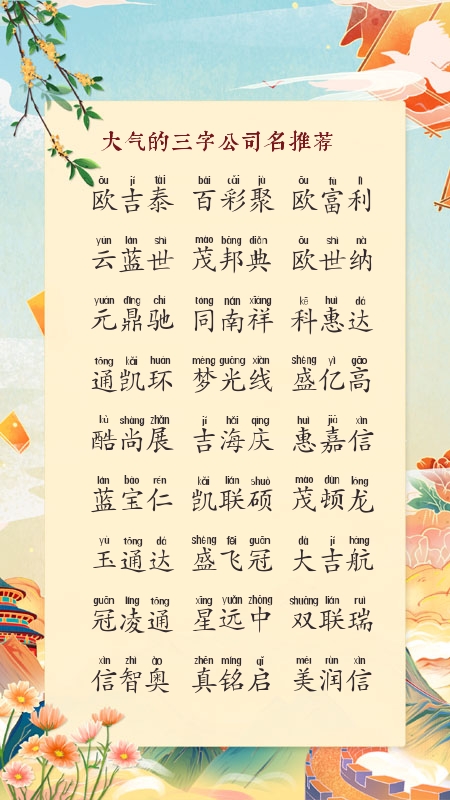 大气的三字公司名推荐
ōu jí tài bǎi cǎi jù ōu fù lì
欧吉泰 百彩聚 欧富利
yún lán shì mào bāng diǎn ōu shì nà
云蓝世 茂邦典 欧世纳
yuán dǐng chí tóng nán xiáng kē huì dá
元鼎驰 同南祥 科惠达
tōng kǎi huán mèng guāng xiàn shèng yì gāo
通凯环 梦光线 盛亿高
kù shàng zhǎn jí hǎi qìng huì jiā xìn
酷尚展 吉海庆 惠嘉信
lán bǎo rén kǎi lián shuò mào dùn lóng
蓝宝仁 凯联硕 茂顿龙
yù tōng dá shèng fēi guān dà jí háng
玉通达 盛飞冠 大吉航
guān líng tōng xīng yuǎn zhōng shuāng lián ruì
冠凌通 星远中 双联瑞
xìn zhì ào zhēn míng qǐ měi rùn xìn
信智奥 真铭启 美润信